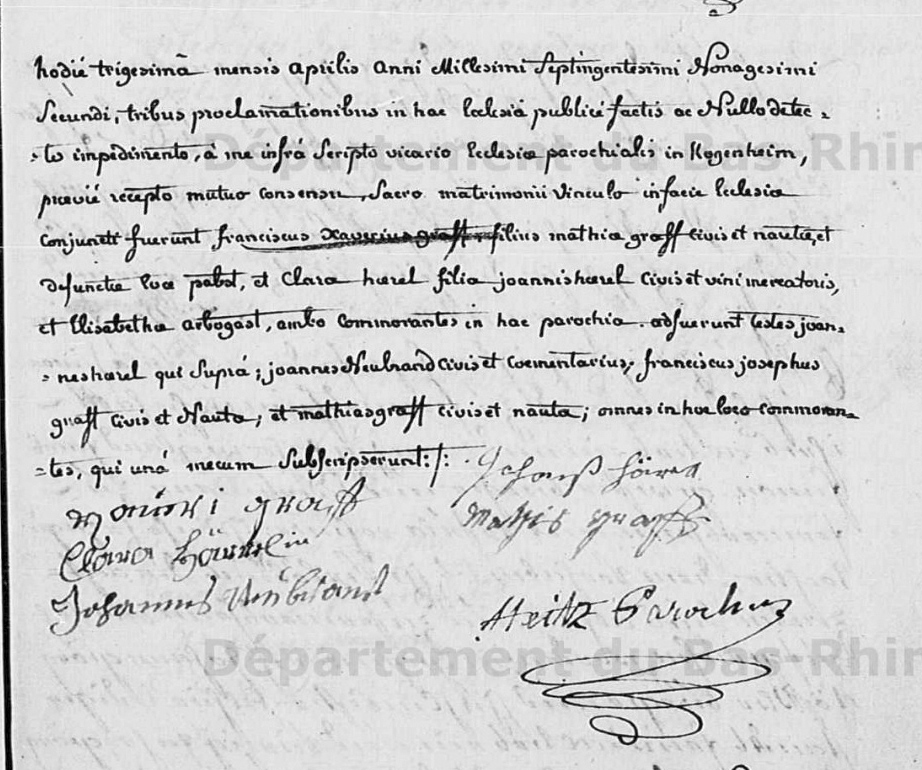 hodiè trigesimâ mensis aprilis anni Millesimi Septingentesimi Nonagesimi
Secundi, tribus proclamationibus in hac Ecclesiâ publicè factis ac Nullo detec=
=to impedimento, à me infrà Scripto vicario Ecclesiæ parochialis in Kogenheim,
præviè recepto mutuo consensu, Sacro matrimonii vinculo in facie Ecclesiæ
conjuncti fuerunt franciscus Xaverius graff filius mathiæ graff civis et nautæ, et
defunctæ Evæ pabst, et Clara hærel filia joannis hærel civis et vini mercatoris,
et Elisabethæ arbogast, ambo commorantes in hac parochia. adfuerunt testes joan=
=nes hærel qui Suprà; joannes Neubrand civis et coementarius; franciscus josephus
graff civis et Nauta; et mathias graff civis et nauta; omnes in hoc loco commoran=
=tes, qui unà mecum Subscripserunt:/:
graff
Clara
Johannes
Mathis graff
Heitz Parochus
Département du Bas-Rhin
Département du Bas-Rhin